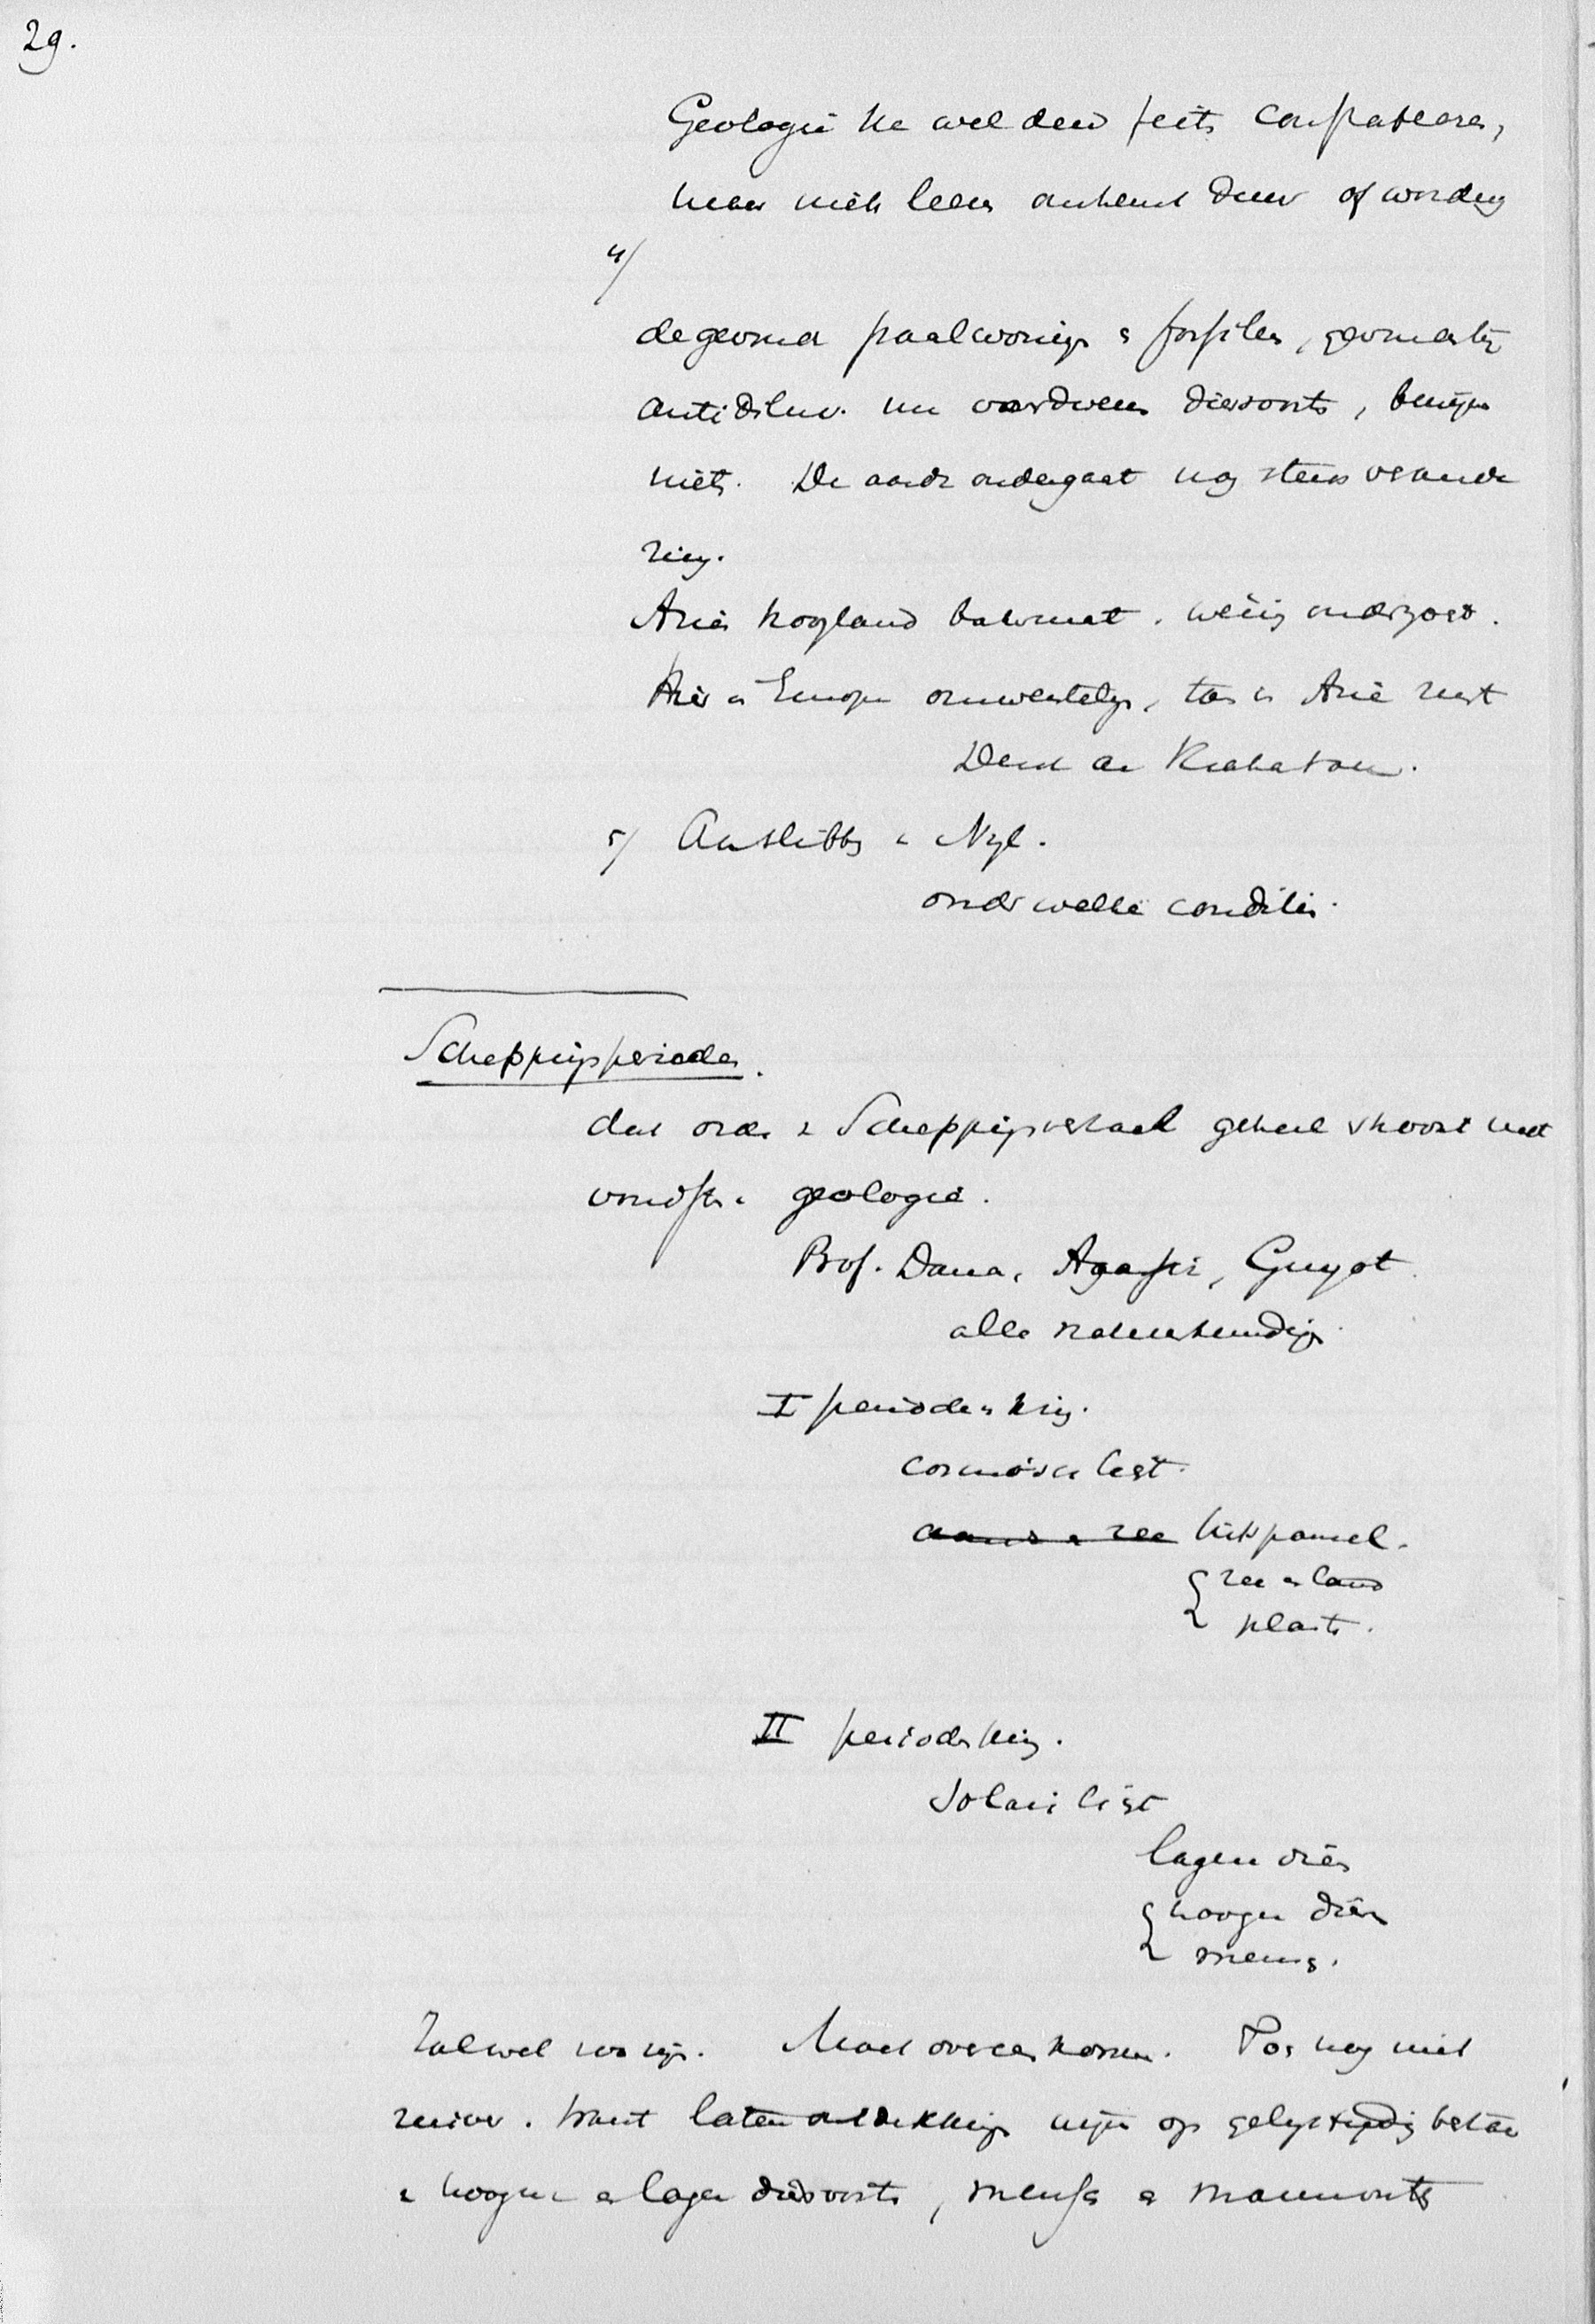 29.
Geologie ka wel den feits constateeren,
maar niets leeren omtrent duur of wording
4/
de gevonden paalwoning & fossilen, gevonden
antidiluv. nu verdween diersoorte, bewijzen
niets. De aarde ondergaat nog steeds verande
ring.
Azië hoogland bakermat. weinig onderzocht.
Hier in Europa omwentelg, toen in Azië rust
Denk an Krakatau.
5/ Anslibbg v Nijl.
onder welke condities.
Scheppingsperioden.
dat orde v Scheppingsverhaal geheel strookt met
vondsten v geologie.
Prof. Dana, Agassiz, Guyot
alle natuurkundige
I periodenkring.
cosmisch licht.
uitspansel.
zee en land
plante.
II periodekring.
Solair licht
lagere dieren
hoogere dieren
mens.
Zal wel zoo zijn. Moet overeenkomen. Toch nog niet
zuiver. Want latere ontdekking wijzen op gelijktijdig bestaan
v hoogere en lagere diersoorte, mensch en mammouts